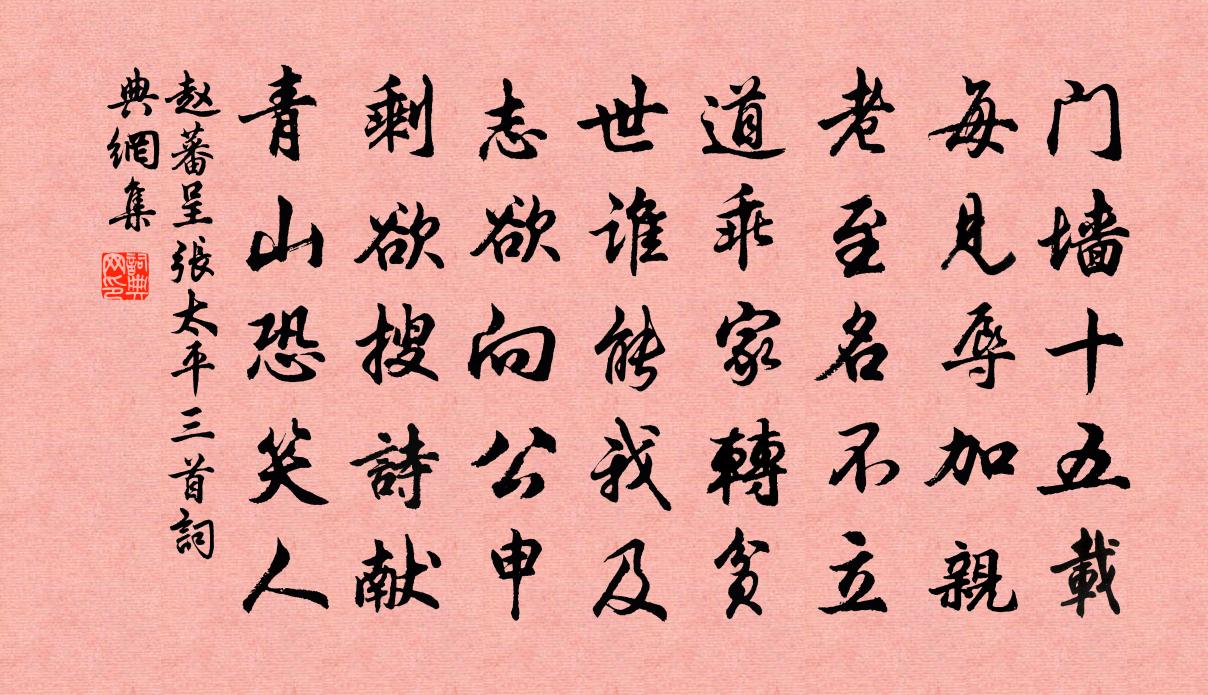 门墙十五载
每见辱加親
老至名不立
道乖家轉贫
世谁能我及
志欲向公申
剩欲搜詩献
青山恐笑人
赵蕃呈張太平三首詞
典網集
詞典網印